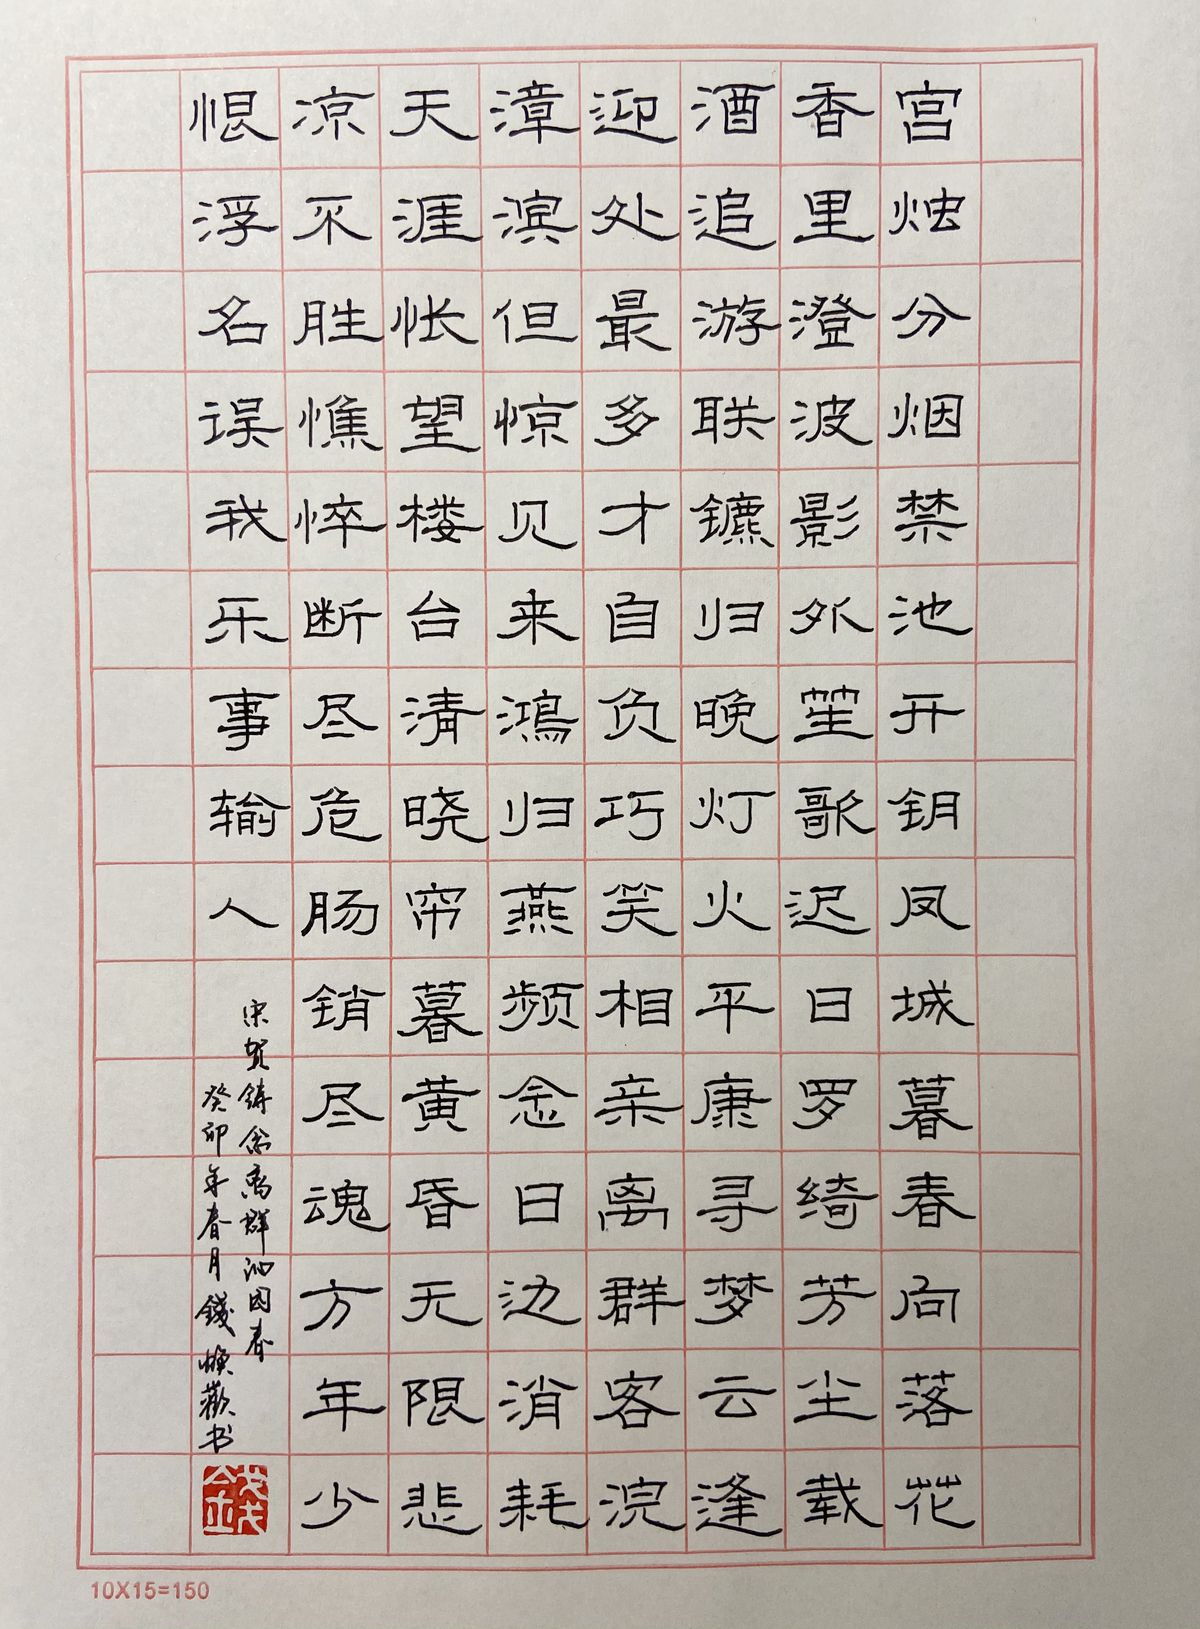 宫烛分烟禁池开钥凤城暮春向落花
香里澄波影外笙歌迟日罗绮芳尘载
酒追游联镳归晚灯火平康寻梦云逢
迎处最多才自负巧笑相亲离群客浣
漳滨但惊见来鸿归燕频念日边消耗
天涯怅望楼台清晓帘暮黄昏无限悲
凉不胜憔悴断尽危肠销尽魂方年少
恨浮名误我乐事输人
宋贺铸念离群沁园春
癸卯年春月錢书
錢
10X15=150